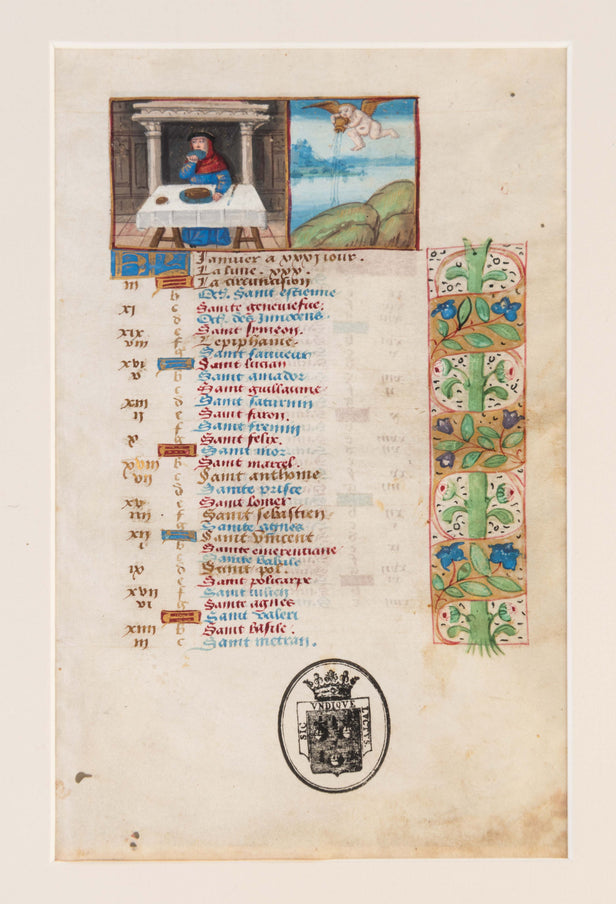 Januier a xxxi iour.
La lune. xxx.
iii La circuncision
b Oct. Saint estienne
xi c Sainte geneuiefue.
d Oct. des innocens
xix e Saint symeon.
viii f Lepiphanie.
g Saint sauueur
xvi Saint lucian
v b Saint amador
c Saint guillaume
xiii d Saint saturnin
ii e Saint faron.
f Saint fremin
x g Saint felix.
Saint mor.
xviii b Saint marcel.
vii c Saint anthoine
d Sainte prisce
xv e Saint lomer
iiii f Saint sebastien
g Sainte agnes
xii Saint vincent
i b Sainte emerentiane
c Saint babile
ix d Saint pol.
e Saint policarpe
xvii f Saint iulien
vi g Sainte agnes
Saint valeri
xiiii b Saint basile.
iii c Saint metran.
SIC VNDIQVE